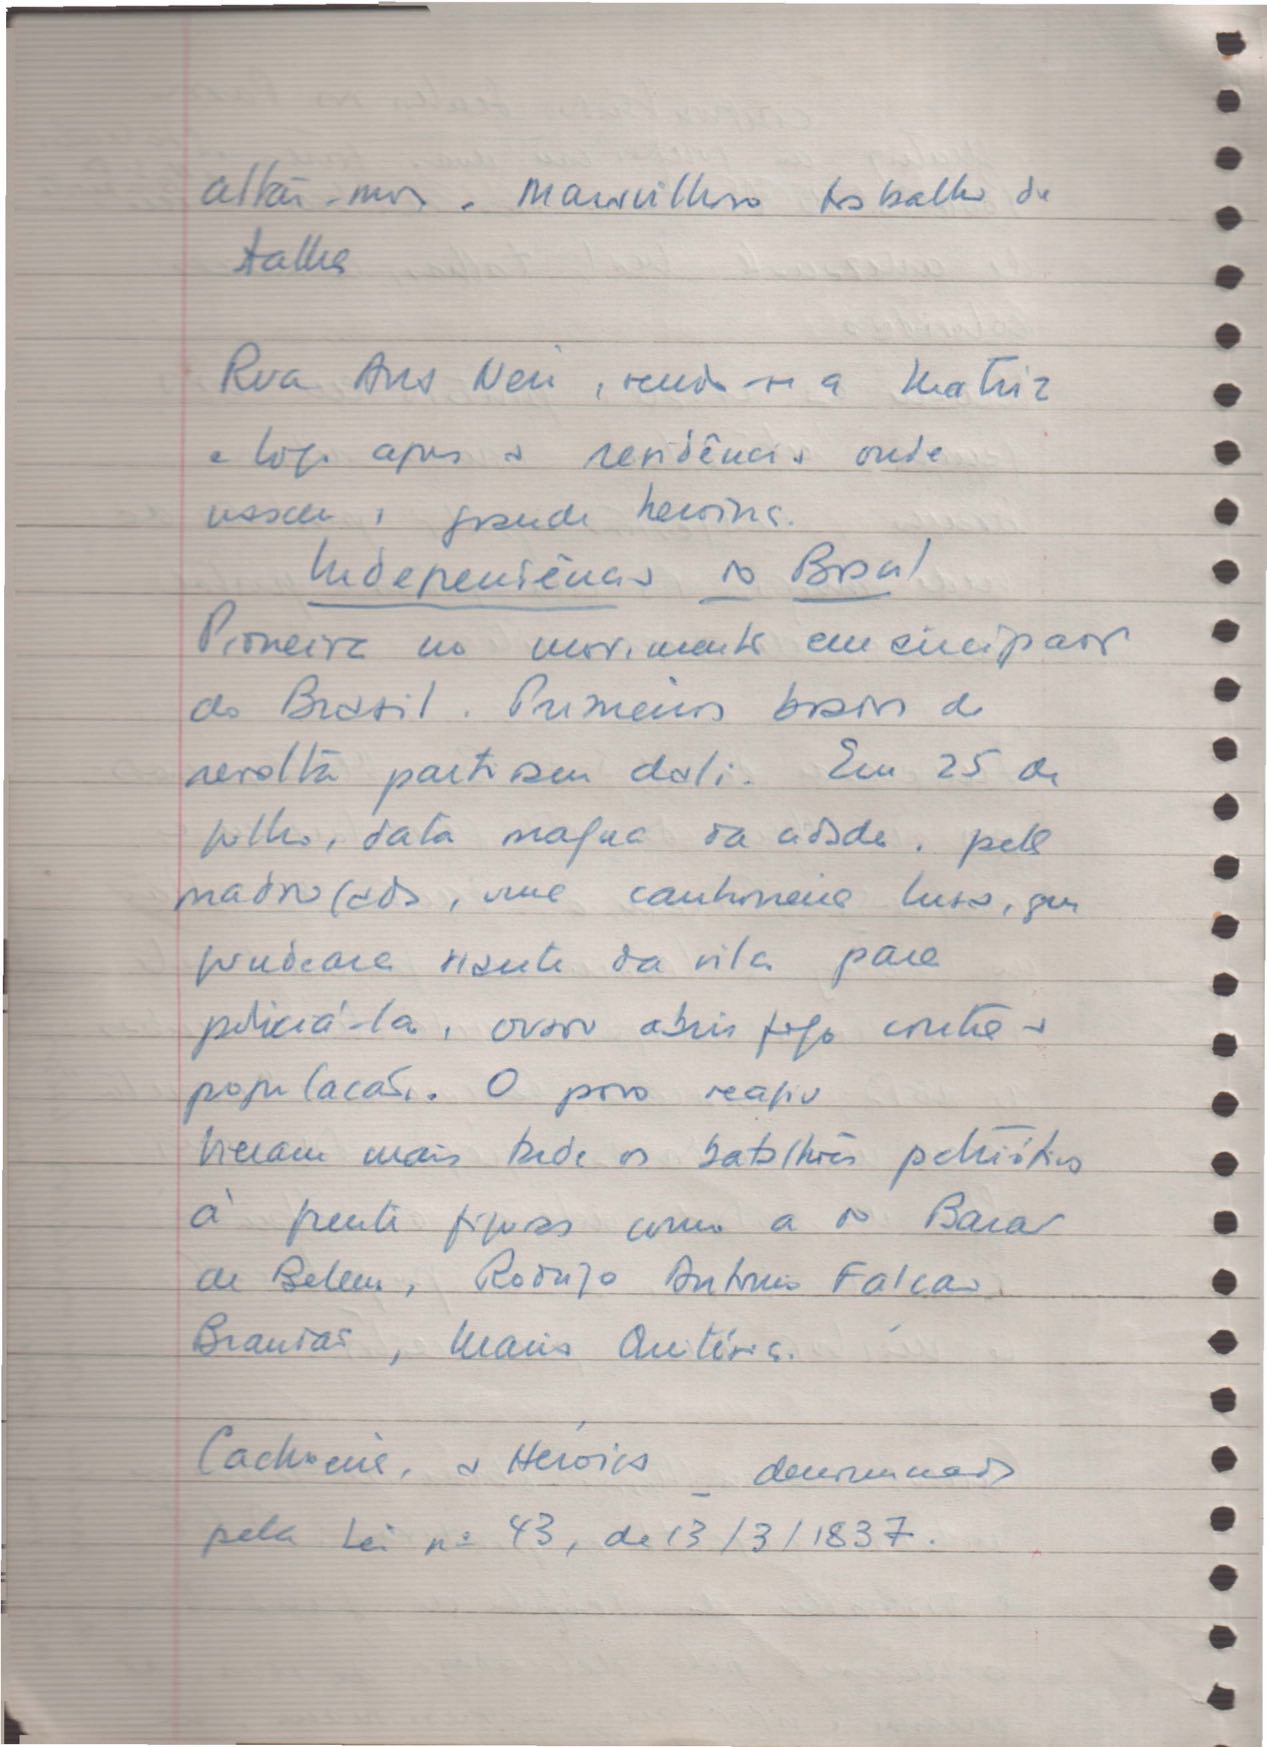 altar-mor. Maravilhoso trabalho de
talha
Rua Ana Neri, vendo-se a Matriz
e logo apos a residência onde
nasceu a grande heroina.
Independência do Brasil
Pioneira no movimento emancipador
do Brasil. Primeiros brados de
revolta partiram dali. Em 25 de
julho, data magna da cidade, pela
madrugada, uma canhoneira lusa, que
fundeara diante da vila para
policiá-la, ousou abrir fogo contra a
população. O povo reagiu
Vieram mais tarde os batalhões patrióticos
à frente figuras como a do Barao
de Belem, Rodrigo Antonio Falcao
Brandão, Maria Quitéria.
Cachoeira, a Heróica _ denominada
pela Lei nº 43, de 13/3/1837.